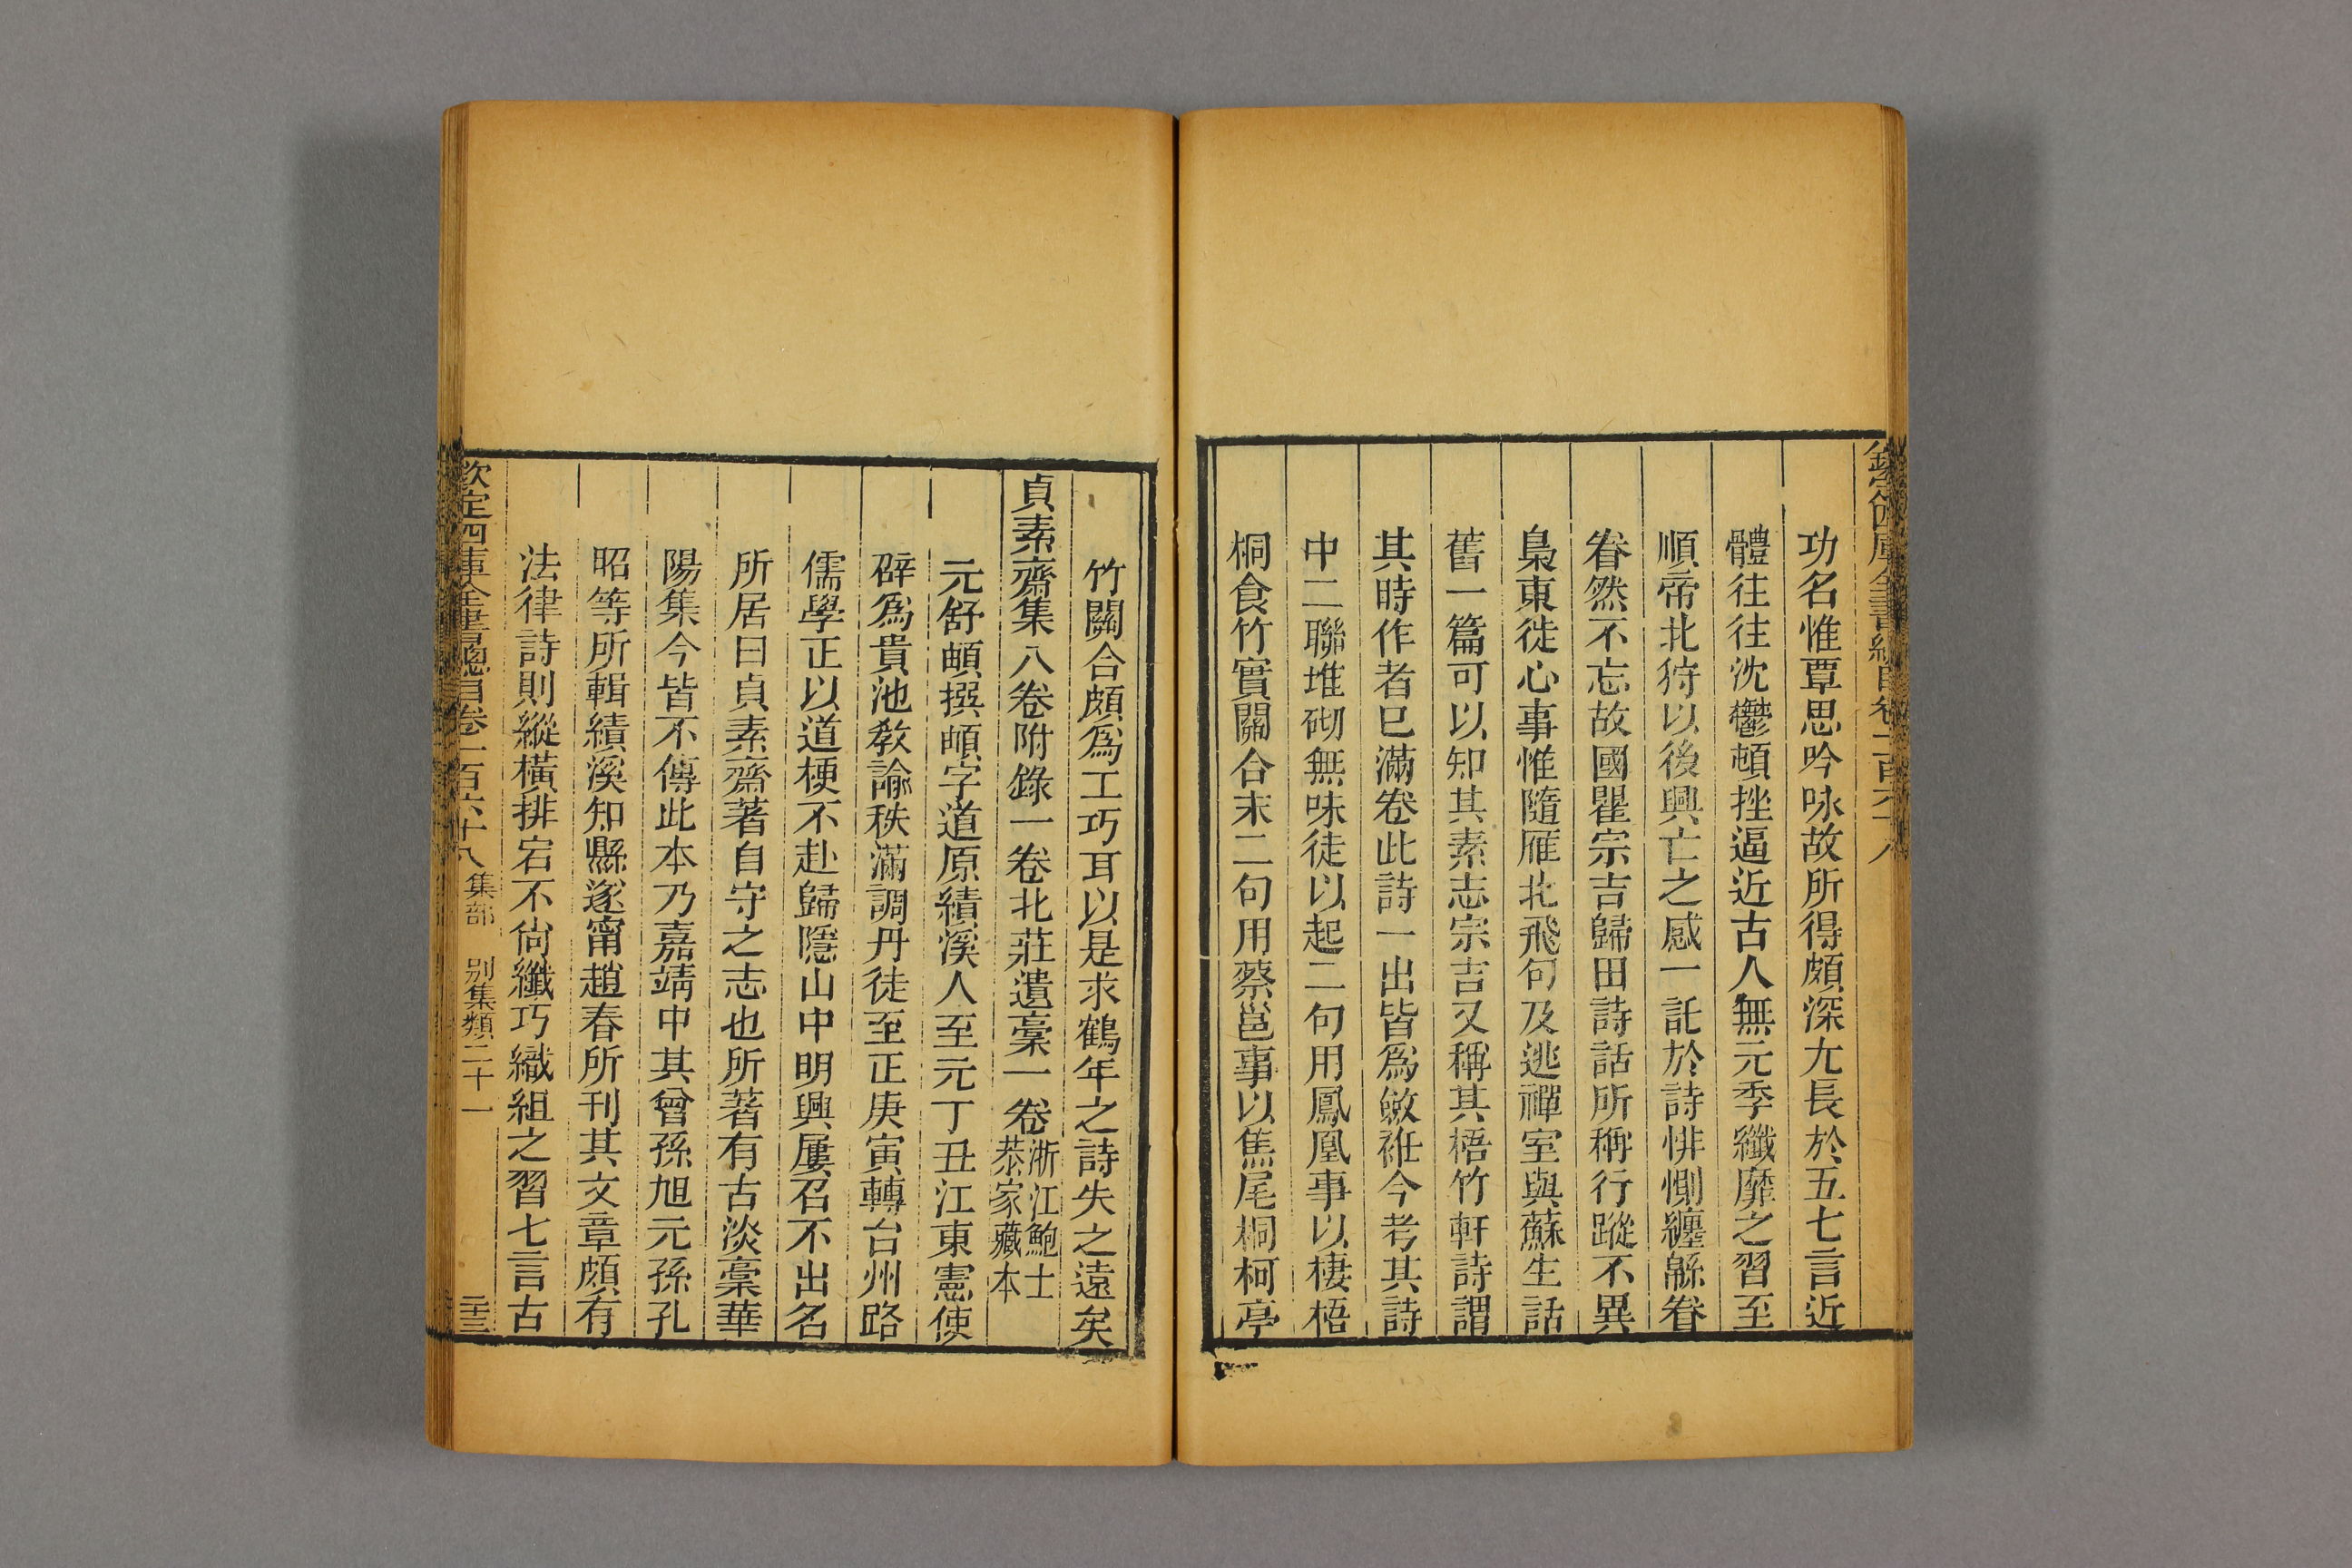 欽定四庫全書總目卷一百六十八
功名惟覃思吟咏故所得頗深尢長於五七言近
體往往沈鬱頓挫逼近古人無元季纖靡之習至
順帝北狩以後興亡之感一託於詩悱惻纏緜眷
眷然不忘故國瞿宗吉歸田詩話所稱行蹤不異
梟東徙心事惟隨雁北飛句及逃禪室與蘇生話
舊一篇可以知其素志宗吉又稱其梧竹軒詩謂
其時作者已滿卷此詩一出皆爲斂袵今考其詩
中二聯堆砌無味徒以起二句用鳳凰事以棲梧
桐食竹實關合末二句用蔡邕事以焦尾桐柯亭
竹關合頗爲工巧耳以是求鶴年之詩失之遠矣
貞素齋集八卷附錄一卷北莊遺稾一卷浙江鮑士
恭家藏本
元舒頔撰頔字道原績溪人至元丁丑江東憲使
辟爲貴池敎諭秩滿調丹徒至正庚寅轉台州路
儒學正以道梗不赴歸隱山中明興屢召不出名
所居曰貞素齋著自守之志也所著有古淡稾華
陽集今皆不傳此本乃嘉靖中其曾孫旭元孫孔
昭等所輯績溪知縣遂甯趙春所刊其文章頗有
法律詩則縱橫排宕不尙纖巧織組之習七言古
欽定四庫全書總目卷一百六十八 集部 別集類二十一 二十三